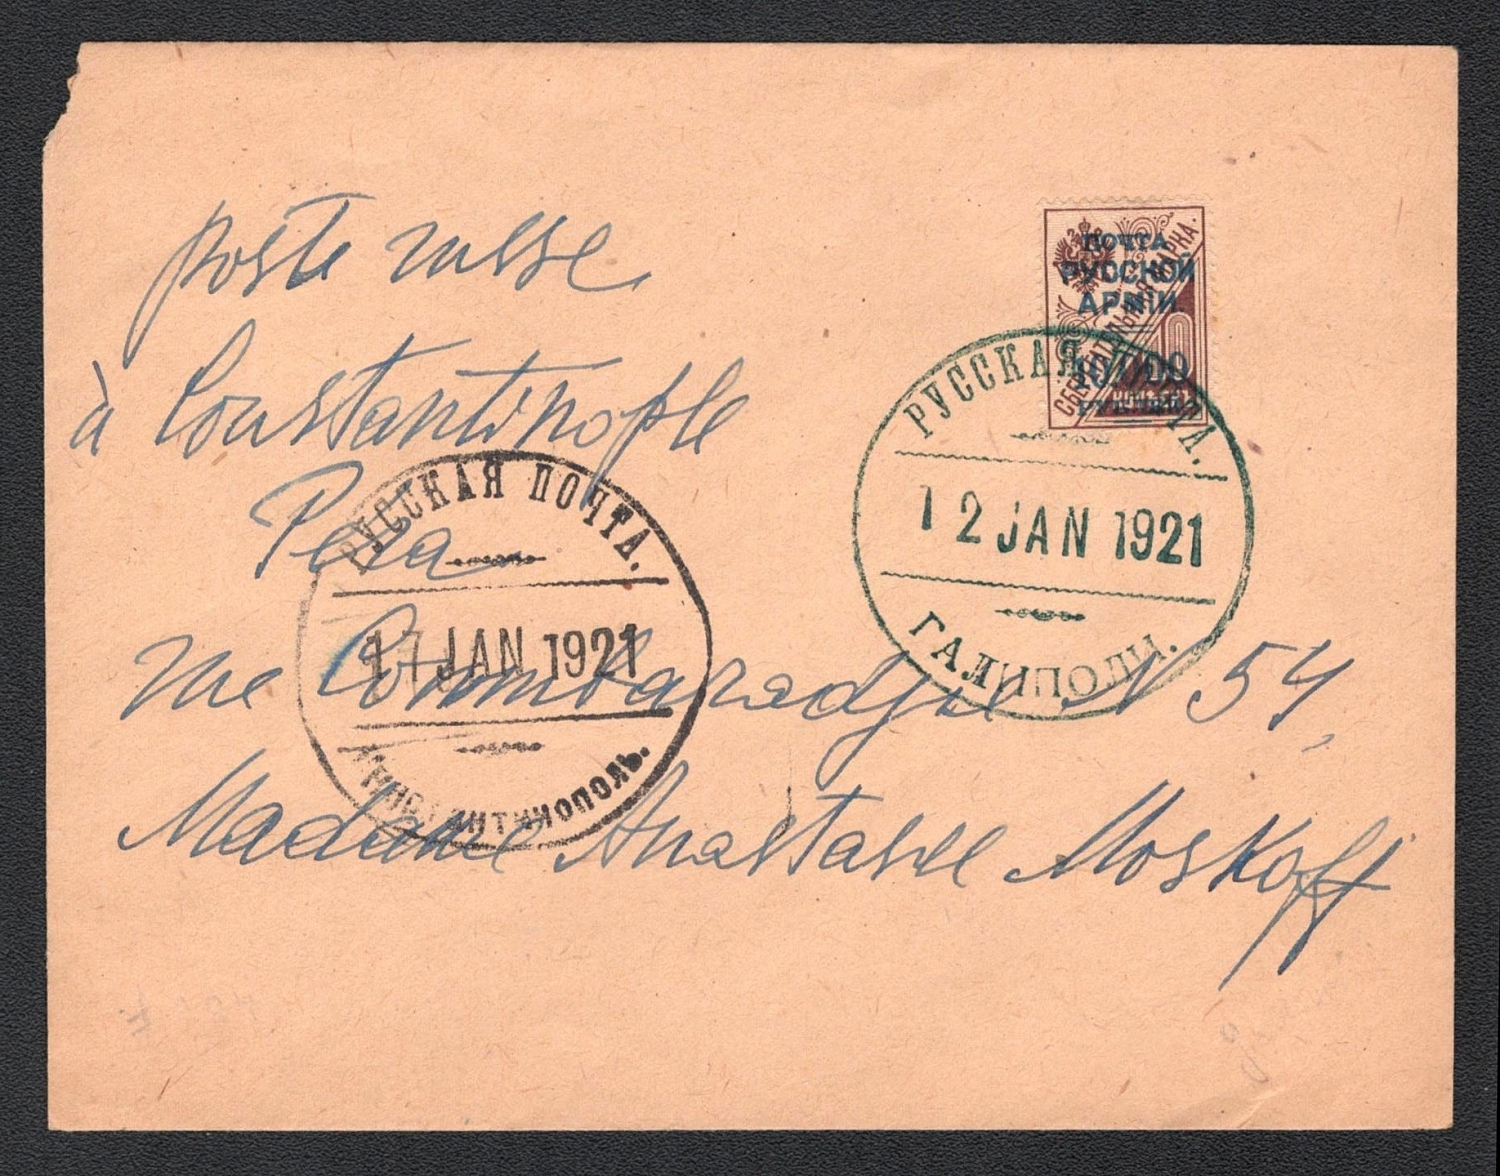 poste russe
à Constantinople
Pera
rue Coumbaradji N 54
Madame Anastasie Moskoff
ПОЧТА
РУССКОЙ
АРМІИ
РУБЛЕЙ
СБЕРЕГАТЕЛЬНАЯ МАРКА.
РУССКАЯ ПОЧТА.
12 JAN 1921
ГАЛИПОЛИ.
РУССКАЯ ПОЧТА.
17 JAN 1921
КОНСТАНТИНОПОЛЬ.